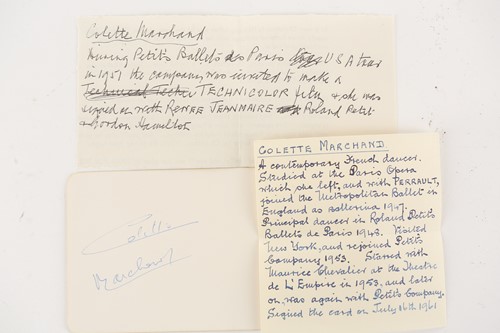 Colette Marchand
During Petit's Ballets des Paris USA tour
in 1951 the company was invited to make a
TECHNICOLOR film & she was
signed on with RENEE JEANMAIRE Roland Petit
& Gordon Hamilton
COLETTE MARCHAND
A contemporary French dancer.
Studied at the Paris Opera
which she left, and with PERRAULT,
joined the Metropolitan Ballet in
England as ballerina 1947.
Principal dancer in Roland Petit's
Ballets de Paris 1948. Visited
New York, and rejoined Petit's
Company 1953. Starred with
Maurice Chevalier at the Theatre
de L'Empire in 1953, and later
on, was again with Petit's Company.
Signed the card on July 16th 1961
Colette
Marchand